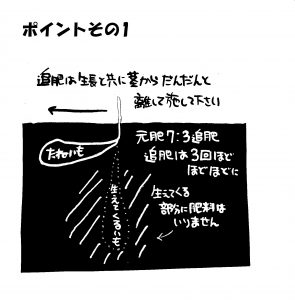 ポイントその1
追肥は生長と共に茎から だんだんと
離して施して下さい
たねいも
元肥7:3追肥
追肥は3回ほど
ほどほどに
生えてくるいも
生えてくる
部分に肥料は
いりません